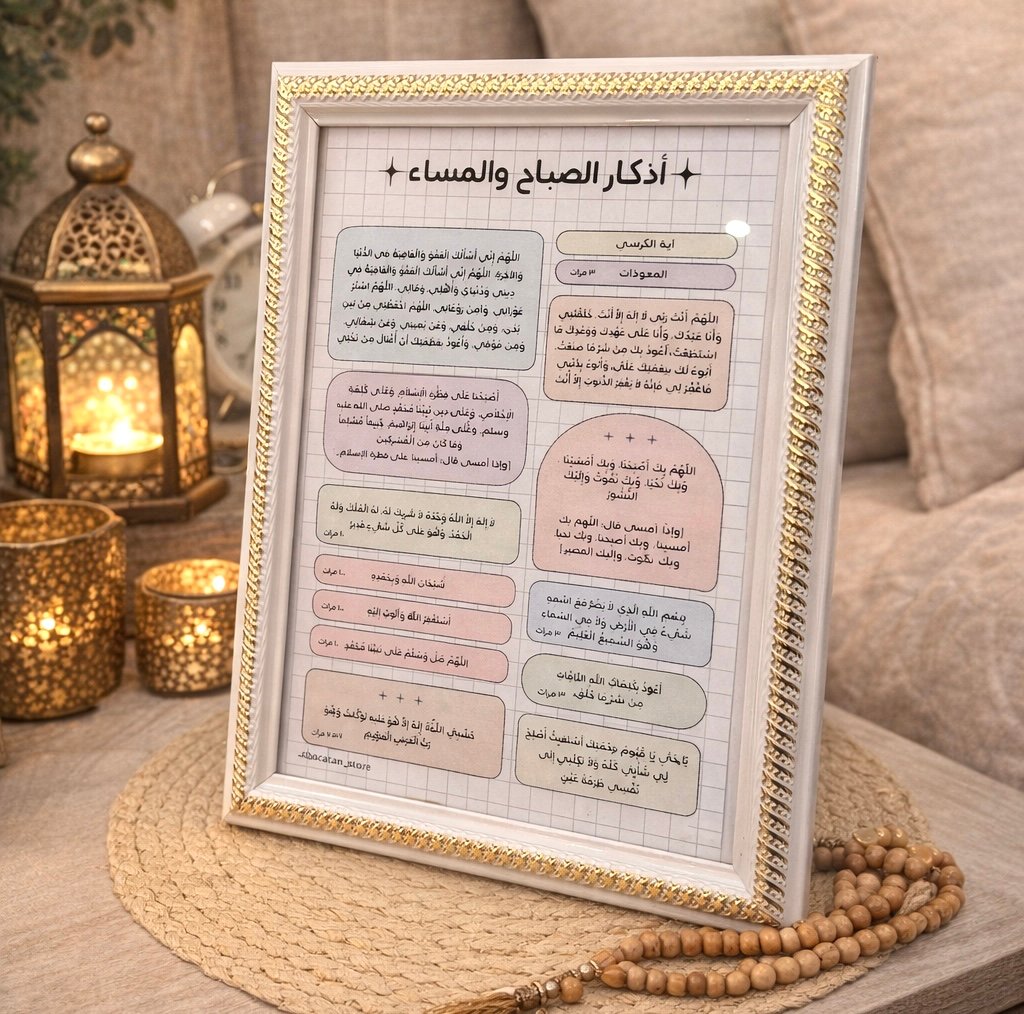 أذكار الصباح والمساء
آية الكرسي
المعوذات ٣ مرات
اللَّهُمَّ أَنْتَ رَبِّي لَا إِلَهَ إِلَّا أَنْتَ، خَلَقْتَنِي
وَأَنَا عَبْدُكَ، وَأَنَا عَلَى عَهْدِكَ وَوَعْدِكَ مَا
اسْتَطَعْتُ، أَعُوذُ بِكَ مِنْ شَرِّ مَا صَنَعْتُ،
أَبُوءُ لَكَ بِنِعْمَتِكَ عَلَيَّ، وَأَبُوءُ بِذَنْبِي
فَاغْفِرْ لِي فَإِنَّهُ لَا يَغْفِرُ الذُّنُوبَ إِلَّا أَنْتَ
اللَّهُمَّ بِكَ أَصْبَحْنَا، وَبِكَ أَمْسَيْنَا،
وَبِكَ نَحْيَا، وَبِكَ نَمُوتُ وَإِلَيْكَ
النُّشُورُ
[وإذا أمسى قال: اللهم بك
أمسينا، وبك أصبحنا، وبك نحيا،
وبك نموت، وإليك المصير]
اللَّهِ الَّذِي لَا يَضُرُّ مَعَ اسْمِهِ
شَيْءٌ فِي الْأَرْضِ وَلَا فِي السَّمَاءِ
وَهُوَ السَّمِيعُ الْعَلِيمُ ٣ مرات
أَعُوذُ بِكَلِمَاتِ اللَّهِ التَّامَّاتِ
مِنْ شَرِّ مَا خَلَقَ ٣ مرات
يَا حَيُّ يَا قَيُّومُ بِرَحْمَتِكَ أَسْتَغِيثُ أَصْلِحْ
لِي شَأْنِي كُلَّهُ وَلَا تَكِلْنِي إِلَى
نَفْسِي طَرْفَةَ عَيْنٍ
اللَّهُمَّ إِنِّي أَسْأَلُكَ الْعَفْوَ وَالْعَافِيَةَ فِي الدُّنْيَا
وَالْآخِرَةِ اللَّهُمَّ إِنِّي أَسْأَلُكَ الْعَفْوَ وَالْعَافِيَةَ فِي
دِينِي وَدُنْيَايَ وَأَهْلِي، وَمَالِي، اللَّهُمَّ اسْتُرْ
عَوْرَاتِي، وَآمِنْ رَوْعَاتِي، اللَّهُمَّ احْفَظْنِي مِنْ بَيْنِ
يَدَيَّ، وَمِنْ خَلْفِي، وَعَنْ يَمِينِي، وَعَنْ شِمَالِي،
وَمِنْ فَوْقِي، وَأَعُوذُ بِعَظَمَتِكَ أَنْ أُغْتَالَ مِنْ تَحْتِي
أَصْبَحْنَا عَلَى فِطْرَةِ الْإِسْلَامِ وَعَلَى كَلِمَةِ
الْإِخْلَاصِ، وَعَلَى دِينِ نَبِيِّنَا مُحَمَّدٍ صلى الله عليه
وسلم، وَعَلَى مِلَّةِ أَبِينَا إِبْرَاهِيمَ، حَنِيفًا مُسْلِمًا
وَمَا كَانَ مِنَ الْمُشْرِكِينَ
[وإذا أمسى قال: أمسينا على فطرة الإسلام..
لَا إِلَهَ إِلَّا اللَّهُ وَحْدَهُ لَا شَرِيكَ لَهُ، لَهُ الْمُلْكُ وَلَهُ
الْحَمْدُ، وَهُوَ عَلَى كُلِّ شَيْءٍ قَدِيرٌ ١٠ مرات
سُبْحَانَ اللَّهِ وَبِحَمْدِهِ ١٠٠ مرات
أَسْتَغْفِرُ اللَّهَ وَأَتُوبُ إِلَيْهِ ١٠٠ مرات
اللَّهُمَّ صَلِّ وَسَلِّمْ عَلَى نَبِيِّنَا مُحَمَّدٍ ١٠ مرات
حَسْبِيَ اللَّهُ إِلَهَ إِلَّا هُوَ عَلَيْهِ تَوَكَّلْتُ وَهُوَ
رَبُّ الْعَرْشِ الْعَظِيمِ ٧ مرات